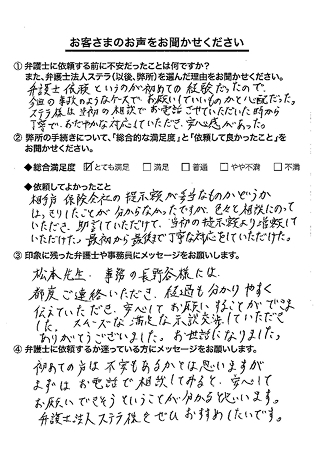 お客さまのお声をお聞かせください
① 弁護士に依頼する前に不安だったことは何ですか？
また、弁護士法人ステラ（以後、弊所）を選んだ理由をお聞かせください。
弁護士依頼というのが初めての経験だったので、
今回の事故のようなケースでお願いしていいものかと心配だった。
ステラ様は当初の相談でお電話させていただいた時から
丁寧で、おだやかな対応していただき、安心感があった。
② 弊所の手続きについて、「総合的な満足度」と「依頼して良かったこと」を
お聞かせください。
◆総合満足度 ☑とても満足 □満足 □普通 □やや不満 □不満
◆依頼してよかったこと
相手方保険会社の提示額が妥当なものかどうか
はっきりしたことが分からなかったですが、色々と相談にのって
いただき、助言していただけて、当初の提示額より増額して
いただけた。最初から最後まで丁寧な対応をしていただけた。
③ 印象に残った弁護士や事務員にメッセージをお願いします。
松本先生、事務の長野谷様には、
都度ご連絡いただき、経過も分かりやすく
伝えていただき、安心してお願いすることができま
した。スムーズな満足な示談交渉していただき
ありがとうございました。お世話になりました。
④ 弁護士に依頼するか迷っている方にメッセージをお願いします。
初めての方は不安もあるかとは思いますが
まずはお電話で相談してみると、安心して
お願いできそうということが分かると思います。
弁護士法人ステラ様をぜひおすすめしたいです。